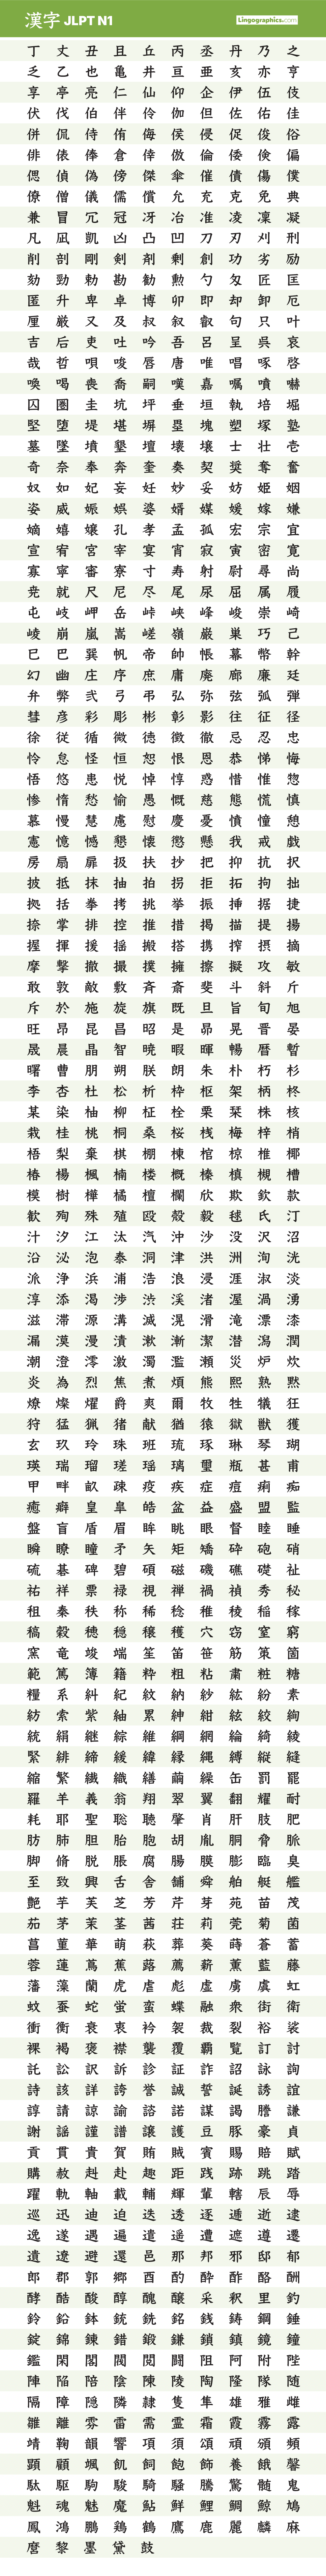 漢字 JLPT N1
Lingographics.com
丁 丈 丑 且 丘 丙 丞 丹 乃 之
乏 乙 也 亀 井 亘 亜 亥 亦 亨
享 亭 亮 仁 仙 仰 企 伊 伍 伎
伏 伐 伯 伴 伶 伽 但 佐 佑 佳
併 侃 侍 侑 侮 侯 侵 促 俊 俗
俳 俵 俸 倉 倖 倣 倫 倭 倹 偏
偲 偵 偽 傍 傑 傘 催 債 傷 僕
僚 僧 儀 儒 償 允 充 克 免 典
兼 冒 冗 冠 冴 冶 准 凌 凜 凝
凡 凪 凱 凶 凸 凹 刀 刃 刈 刑
削 剖 剛 剣 剤 剰 創 功 劣 励
劾 勁 勅 勘 勧 勲 勺 匁 匠 匡
匿 升 卑 卓 博 卯 即 却 卸 厄
厘 厳 又 及 叔 叙 叡 句 只 叶
吉 后 吏 吐 吟 吾 呂 呈 呉 哀
哉 哲 唄 唆 唇 唐 唯 唱 啄 啓
喚 喝 喪 喬 嗣 嘆 嘉 嘱 噴 嚇
囚 圏 圭 坑 坪 垂 垣 執 培 堀
堅 堕 堤 堪 塀 塁 塊 塑 塚 塾
墓 墜 墳 墾 壇 壊 壌 士 壮 壱
奇 奈 奉 奔 奎 奏 契 奨 奪 奮
奴 如 妃 妄 妊 妙 妥 妨 姫 姻
姿 威 娠 娯 婆 婿 媒 媛 嫁 嫌
嫡 嬉 嬢 孔 孝 孟 孤 宏 宗 宜
宣 宥 宮 宰 宴 宵 寂 寅 密 寛
寡 寧 審 寮 寸 寿 射 尉 尋 尚
尭 就 尺 尼 尽 尾 尿 屈 属 履
屯 岐 岬 岳 峠 峡 峰 峻 崇 崎
崚 崩 嵐 嵩 嵯 嶺 巌 巣 巧 己
巳 巴 巽 帆 帝 帥 帳 幕 幣 幹
幻 幽 庄 序 庶 庸 廃 廊 廉 廷
弁 弊 弐 弓 弔 弘 弥 弦 弧 弾
彗 彦 彩 彫 彬 彰 影 往 征 径
徐 従 循 微 徳 徴 徹 忌 忍 忠
怜 怠 怪 恒 恕 恨 恩 恭 悌 悔
悟 悠 患 悦 悼 惇 惑 惜 惟 惣
惨 惰 愁 愉 愚 慨 慈 態 慌 慎
慕 慧 慮 慰 慶 憂 憤 憧 憩
憲 憶 憾 懇 懐 懲 懸 我 戒 戯
房 扇 扉 扱 扶 抄 把 抑 抗 択
披 抵 抹 抽 拍 拐 拒 拓 拘 拙
拠 括 拳 拷 挑 挙 振 挿 据 捷
捺 掌 排 控 推 措 掲 描 提 揚
握 揮 援 揺 搬 搭 携 搾 摂 摘
摩 撃 撤 撮 撲 擁 擦 擬 攻 敏
敢 敦 敵 敷 斉 斎 斐 斗 斜 斤
斥 於 施 旋 旗 既 旦 旨 旬 旭
旺 昂 昆 昌 昭 是 昴 晃 晋 晏
晟 晨 晶 智 暁 暇 暉 暢 暦 暫
曙 曹 朋 朔 朕 朗 朱 朴 朽 杉
李 杏 杜 松 析 枠 枢 架 柄 柊
某 染 柚 柳 柾 栓 栗 栞 株 核
栽 桂 桃 桐 桑 桜 桟 梅 梓 梢
梧 梨 棄 棋 棚 棟 棺 椋 椎 椰
椿 楊 楓 楠 楼 概 榛 槙 槻 槽
模 樹 樺 橘 檀 欄 欣 欺 欽 款
歓 殉 殊 殖 殴 殻 毅 毬 氏 汀
汁 汐 江 汰 汽 沖 沙 没 沢 沼
沿 泌 泡 泰 洞 津 洪 洲 洵 洸
派 浄 浜 浦 浩 浪 浸 涯 淑 淡
淳 添 渇 渉 渋 渓 渚 渥 渦 湧
滋 滞 源 溝 滅 滉 滑 滝 漂 漆
漏 漠 漫 漬 漱 漸 潔 潜 潟 潤
潮 澄 澪 激 濁 濫 瀬 災 炉 炊
炎 為 烈 焦 煮 煩 熊 熙 熟 黙
燎 燦 燿 爵 爽 爾 牧 牲 犠 狂
狩 猛 猟 猪 献 猶 猿 獄 獣 獲
玄 玖 玲 珠 班 琉 琢 琳 琴 瑚
瑛 瑞 瑠 瑳 瑶 璃 璽 瓶 甚 甫
甲 畔 畝 疎 疫 疾 症 痘 痢 痴
癒 癖 皇 皐 皓 盆 益 盛 盟 監
盤 盲 盾 眉 眸 眺 眼 督 睦 睡
瞬 瞭 瞳 矛 矢 矩 矯 砕 砲 硝
硫 碁 碑 碧 碩 磁 磯 礁 礎 祉
祐 祥 票 禄 視 禅 禍 禎 秀 秘
租 秦 秩 称 稀 稔 稚 稜 稲 稼
稿 穀 穂 穏 穣 穫 穴 窃 室 窮
窯 竜 竣 端 笙 笛 笹 筋 策 箇
範 篤 簿 籍 粋 粗 粘 粛 粧 糖
糧 系 糾 紀 紋 納 紗 紘 紛 素
紡 索 紫 紬 累 紳 紺 絃 絞 絢
統 絹 継 綜 維 綱 網 綸 綺 綾
緊 緋 締 緩 緯 縁 縄 縛 縦 縫
縮 繁 繊 織 繕 繭 繰 缶 罰 罷
羅 羊 義 翁 翔 翠 翼 翻 耀 耐
耗 耶 聖 聡 聴 肇 肖 肝 肢 肥
肪 肺 胆 胎 胞 胡 胤 胴 脅 脈
脚 脩 脱 脹 腐 腸 膜 膨 臨 臭
至 致 興 舌 舎 舗 舜 舶 艇 艦
艶 芋 芙 芝 芳 芹 芽 苑 苗 茂
茄 茅 茉 茎 茜 荘 莉 莞 菊 菌
菖 菫 華 萌 萩 葬 葵 蒔 蒼 蓄
蓉 蓮 蔦 蕉 蕗 薦 薪 薫 藍 藤
藩 藻 蘭 虎 虐 彪 虚 虜 虞 虹
蚊 蚕 蛇 蛍 蛮 蝶 融 衆 街 衛
衝 衡 衰 衷 衿 袈 裁 裂 裕 裟
裸 褐 褒 襟 襲 覆 覇 覧 訂 討
託 訟 訳 訴 診 証 詐 詔 詠 詢
詩 該 詳 誇 誉 誠 誓 誕 誘 誼
諄 請 諒 諭 諮 諾 謀 謁 謄 謙
謝 謡 謹 譜 譲 護 豆 豚 豪 貞
貢 貫 貴 賀 賄 賊 賓 賜 賠 賦
購 赦 赳 赴 趣 距 践 跡 跳 踏
躍 軌 軸 載 輔 輝 輩 轄 辰 辱
巡 迅 迪 迫 迭 透 逐 逓 逝 逮
逸 遂 遇 遍 遣 遥 遭 遮 遵 遷
遺 遼 避 還 邑 那 邦 邪 邸 郁
郎 郡 郭 郷 酉 酌 酔 酢 酪 酬
酵 酷 酸 醇 醜 醸 采 釈 里 釣
鈴 鉛 鉢 銃 銑 銘 銭 鋳 鋼 錘
錠 錦 錬 錯 鍛 鎌 鎖 鎮 鏡 鐘
鑑 閑 閣 閥 閲 闘 阻 阿 附 陛
陣 陥 陪 陰 陳 陵 陶 隆 隊 随
隔 障 隠 隣 隷 隻 隼 雄 雅 雌
雛 離 雰 雷 需 霊 霜 霞 霧 露
靖 鞠 韻 響 項 須 頌 頑 頒 頻
顕 顧 颯 飢 飼 飽 飾 養 餓 馨
駄 駆 駒 駿 騎 騒 騰 驚 髄 鬼
魁 魂 魅 魔 鮎 鮮 鯉 鯛 鯨 鳩
鳳 鴻 鵬 鶏 鶴 鷹 鹿 麗 麟 麻
麿 黎 墨 黛 鼓